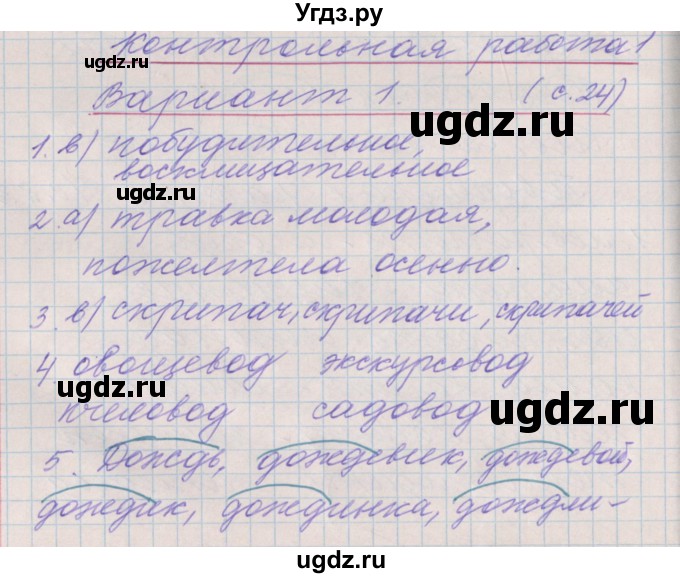 Угдз.ру
Контрольная работа 1
Вариант 1. (с.24)
1. в) побудительное,
восклицательное
2. а) травка молодая,
пожелтела осенью.
3. в) скрипач, скрипачи, скрипачей
4 овощевод экскурсовод
пчеловод садовод
5. Дождь, дождевик, дождевой,
дождик, дождинка, дождли-
ugdz.ru
ugdz.ru
ugdz.ru
ugdz.ru
ugdz.ru
ugdz.ru
ugdz.ru
ugdz.ru